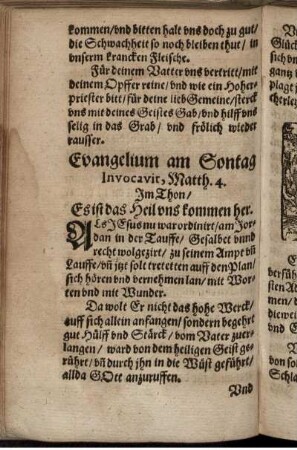 kommen/vnd bitten halt vns doch zu gut/
die Schwachheit so noch bleiben thut/ in
vnserm krancken Fleische.
Für deinem Vatter vns vertritt/mit
deinem Opffer reine/vnd wie ein Hoher-
priester bitt/für deine lieb Gemeine/sterck
vns mit deines Geistes Gab/vnd hilff vns
selig in das Grab/ vnd frölich wieder
rausser.
Evangelium am Sontag
Invocavit, Matth. 4.
Im Thon/
Es ist das Heil vns kommen her.
ALs JEsus nu war ordinirt/am Jor-
dan in der Tauffe/ Gesalbet vnnd
recht wolgeziert/ zu seinem Ampt vñ
Lauffe/vñ jtzt solt tretten auff den Plan/
sich hören vnd vernehmen lan/ mit Wor-
ten vnd mit Wunder.
Da wolt Er nicht das hohe Werck/
auff sich allein anfangen/ sondern begehrt
gut Hülff vnd Stärck/ vom Vater zuer-
langen/ ward von dem heiligen Geist ge-
rührt/vñ durch jhn in die Wüst geführt/
allda GOtt anzuruffen.
Vnd